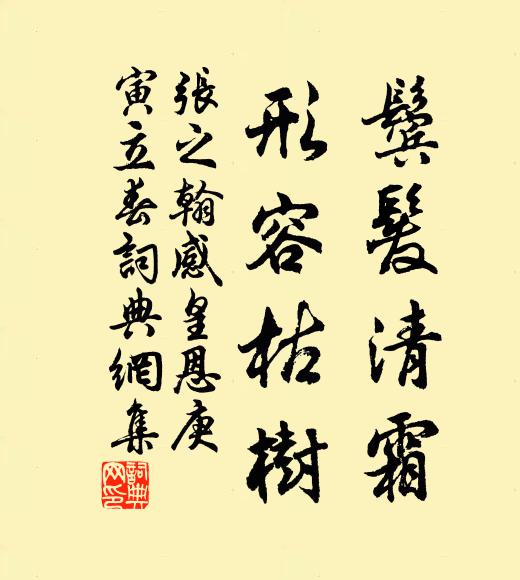 鬓髮清霜
形容枯樹
張之翰感皇恩庚
寅立春詞典網集
詞典網印